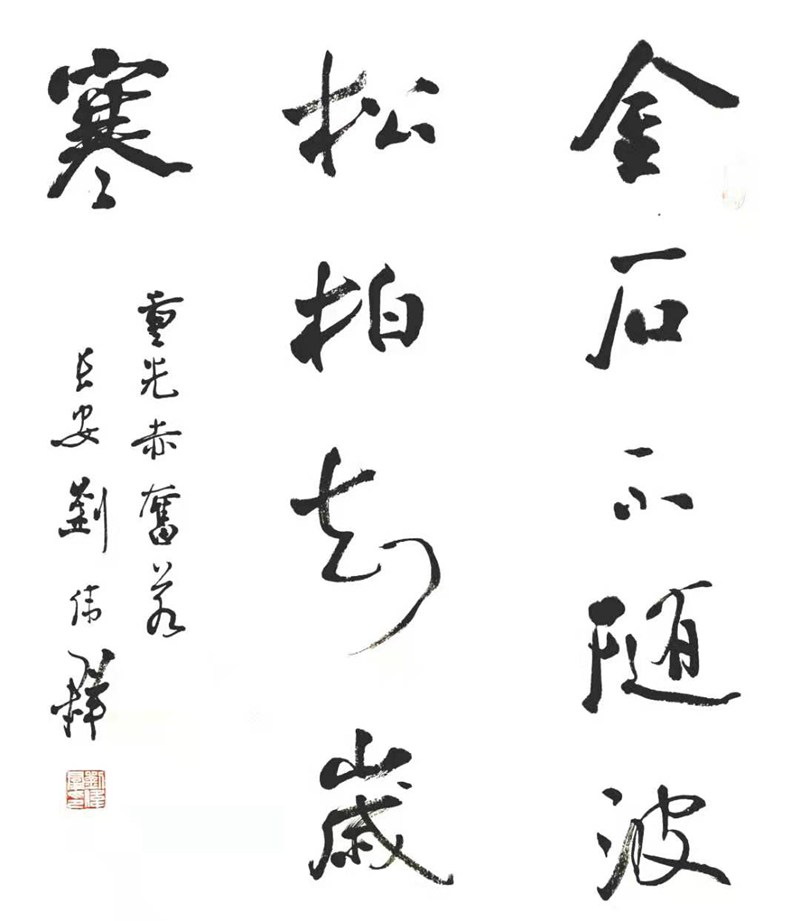 金石不随波
松柏知歲
寒
重光赤奮若
長安劉偉